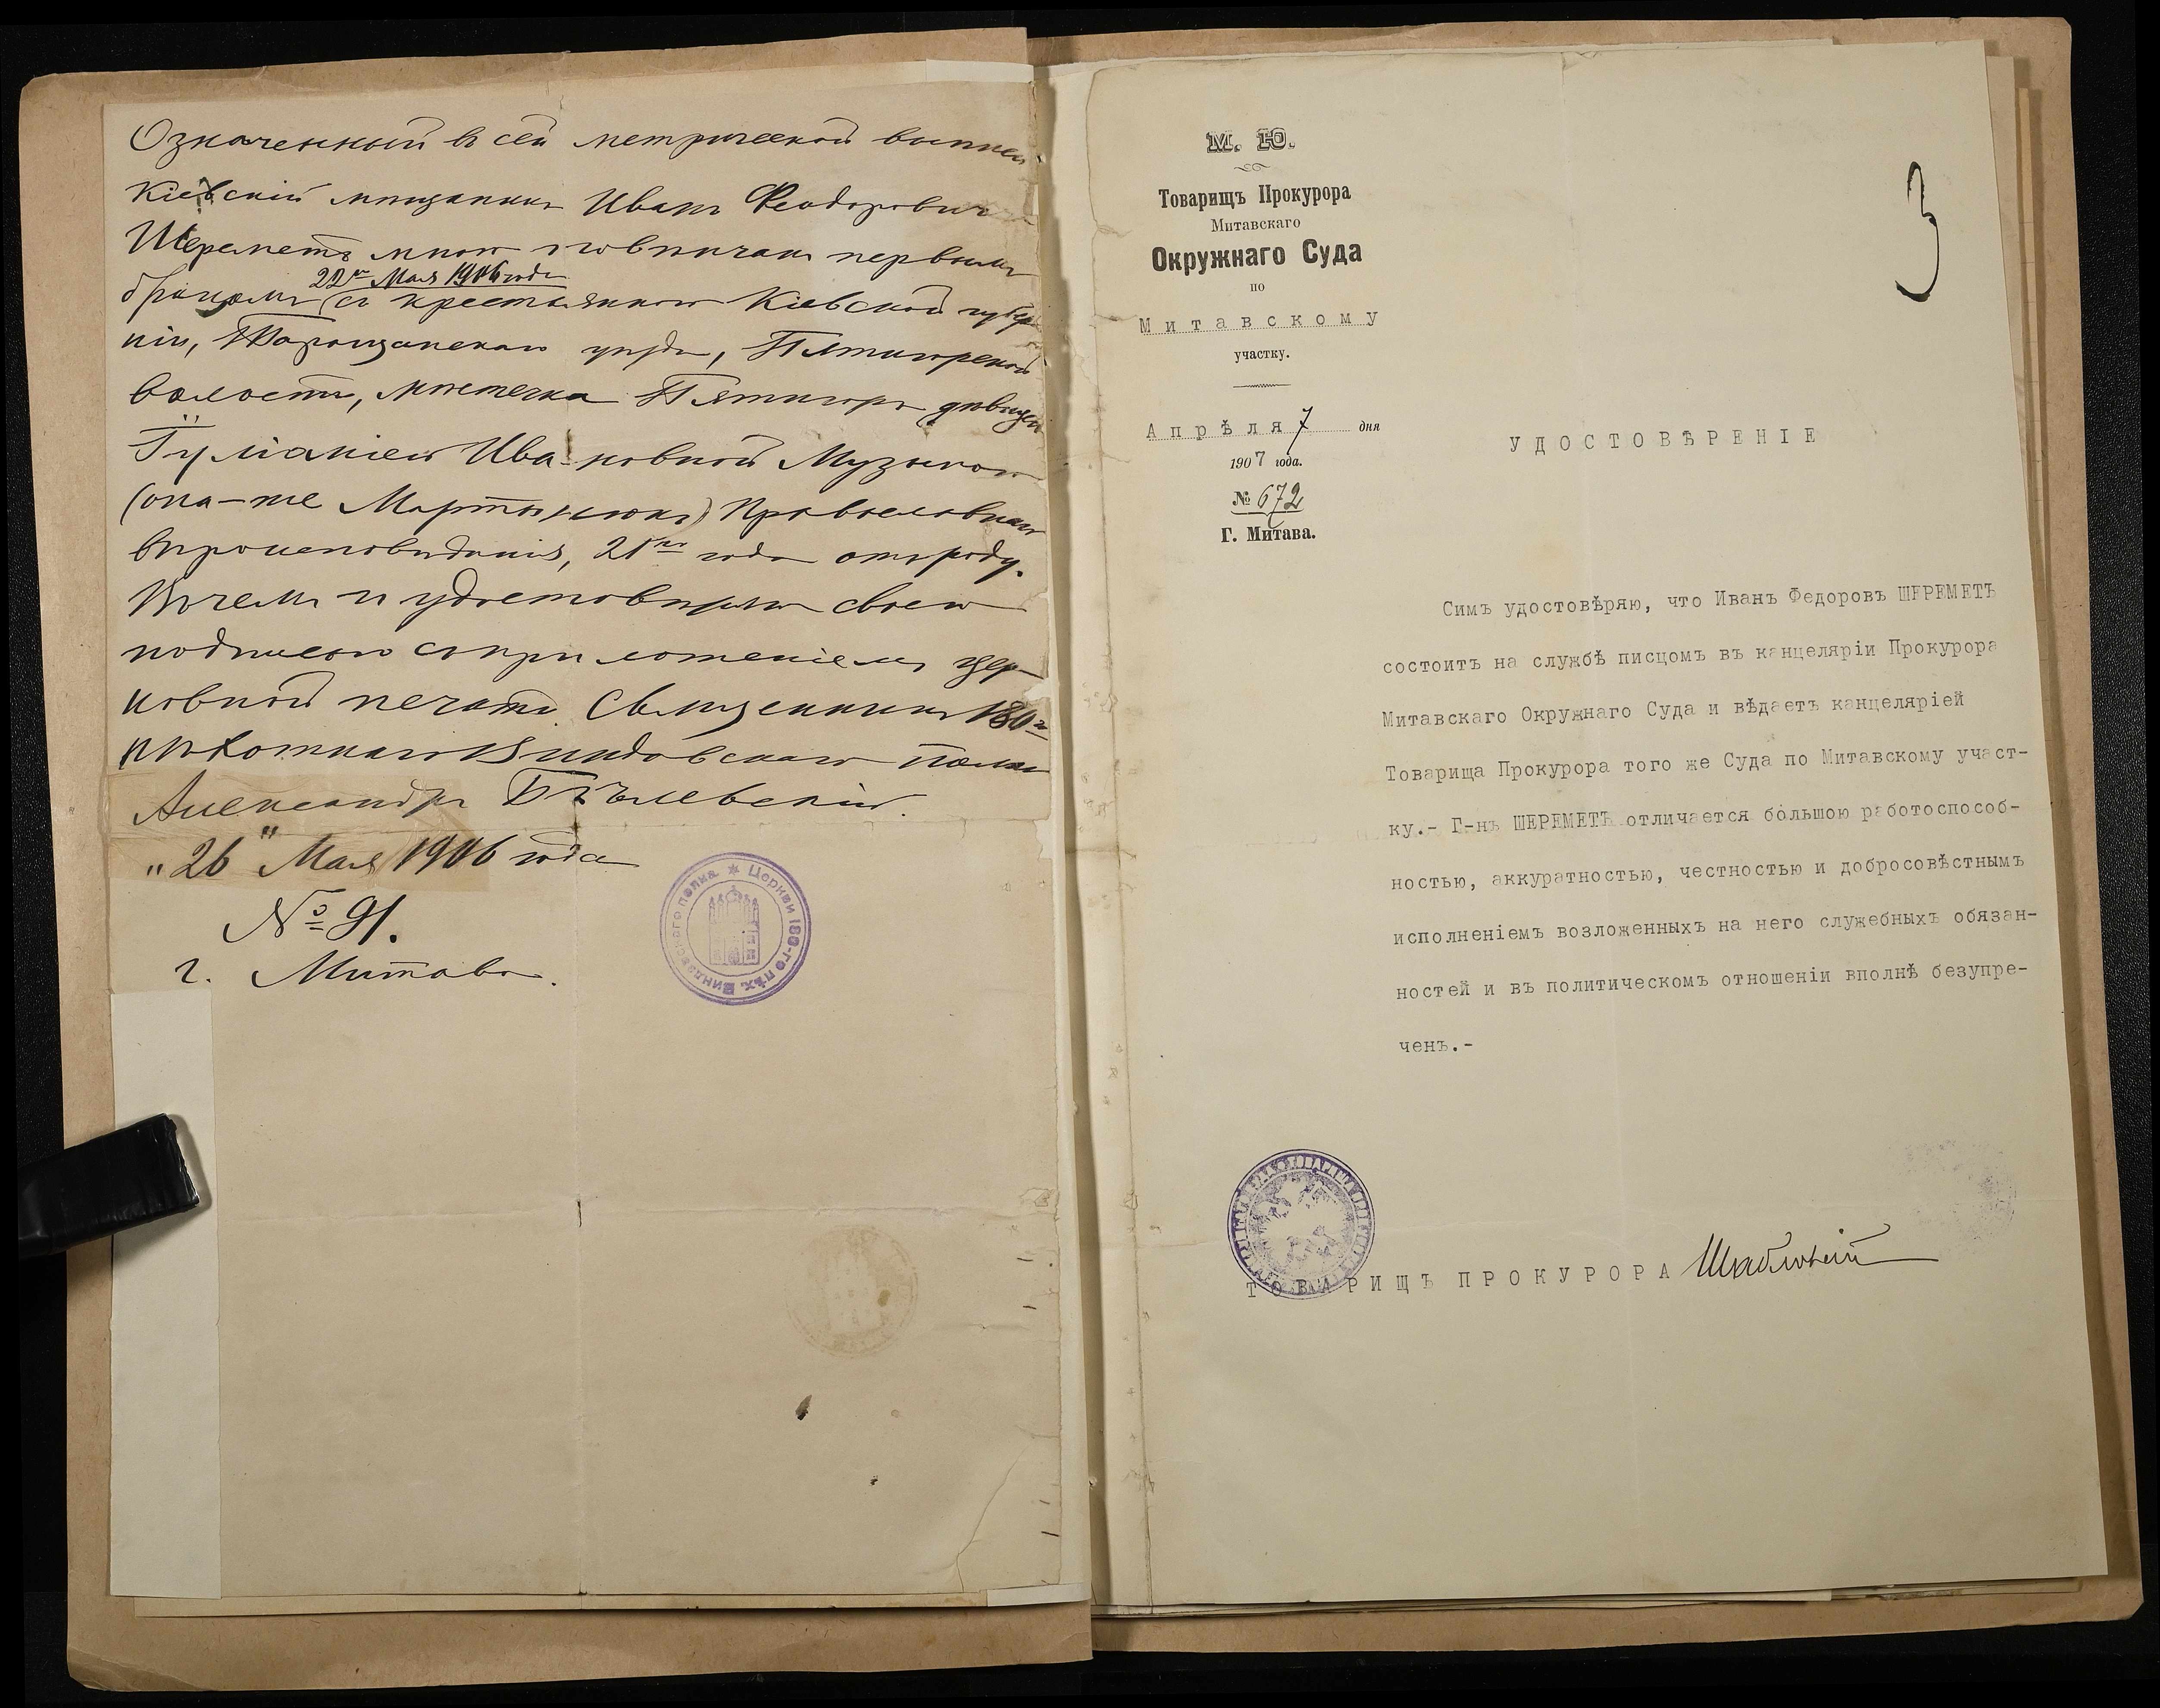 Означенный въ сей метрической выписи
Кіевскій мѣщанинъ Иванъ Феодоровичъ
Шереметъ мною повѣнчанъ первымъ
22го Мая 1906 года
бракомъ съ крестьянкою Кіевской губер-
ніи, Таращанскаго уѣзда, Пятигорской
волости, мѣстечка Пятигоръ дѣвицей
Іуліаніей Ивановной Музыкою
(она-же Мартынюкъ) Православнаго
вѣроисповѣданія, 21го года отъ роду.
Въ чемъ и удостовѣряю своею
подписью съ приложеніемъ цер-
ковной печати. Священникъ 180го
пѣхотнаго Виндавскаго полка
Александръ Бѣлевскій.
"26" Мая 1906 года
№ 91.
г. Митава.
Церкви 180-го пѣх. Виндавского полка
3
М. Ю.
Товарищъ Прокурора
Митавскаго
Окружнаго Суда
по
Митавскому
участку.
Апрѣля 7 дня
1907 года.
№ 672
Г. Митава.
УДОСТОВѢРЕНІЕ
Симъ удостовѣряю, что Иванъ Федоровъ ШЕРЕМЕТЪ
состоитъ на службѣ писцомъ въ канцеляріи Прокурора
Митавскаго Окружнаго Суда и вѣдаетъ канцеляріей
Товарища Прокурора того же Суда по Митавскому участ-
ку.- Г-нъ ШЕРЕМЕТЪ отличается большою работоспособ-
ностью, аккуратностью, честностью и добросовѣстнымъ
исполненіемъ возложенныхъ на него служебныхъ обязан-
ностей и въ политическомъ отношеніи вполнѣ безупре-
ченъ.-
ТОВАРИЩЪ ПРОКУРОРА